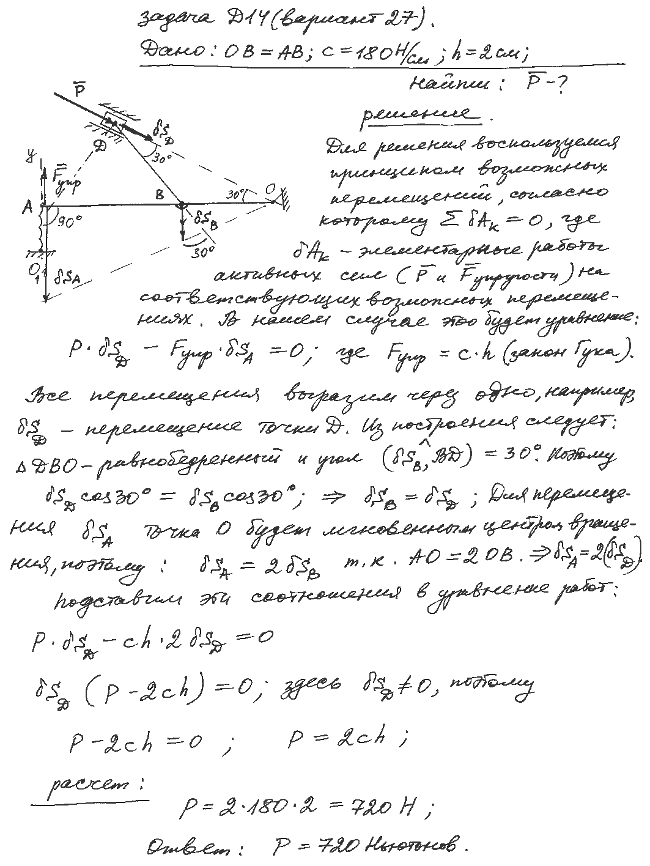 задача Д14 (вариант 27).
Дано: OB = AB; c = 180 Н/см; h = 2 см;
Найти: P̄ - ?
решение.
P̄
δS̄_D
Д
30°
y
F̄упр
A
B
O
30°
90°
δS_B
30°
O₁
δS_A
Для решения воспользуемся
принципом возможных
перемещений, согласно
которому Σ δA_к = 0, где
δA_к - элементарные работы
активных сил (P̄ и F̄упругости) на
соответствующих возможных перемеще-
ниях. В нашем случае это будет уравнение:
P · δS_D - Fупр · δS_A = 0; где Fупр = c·h (закон Гука).
Все перемещения выразим через одно, например,
δS_D - перемещение точки Д. Из построения следует:
△DBO - равнобедренный и угол (δS_B ^ BD) = 30°. Поэтому
δS_D cos30° = δS_B cos30°; ⇒ δS_B = δS_D; Для перемеще-
ния δS_A точка O будет мгновенным центром враще-
ния, поэтому: δS_A = 2δS_B т.к. AO = 2OB. ⇒ δS_A = 2(δS_D).
Подставим эти соотношения в уравнение работ:
P · δS_D - ch · 2 δS_D = 0
δS_D (P - 2ch) = 0; здесь δS_D ≠ 0, поэтому
P - 2ch = 0 ; P = 2ch ;
расчет:
P = 2·180·2 = 720 Н ;
Ответ: P = 720 Ньютонов.